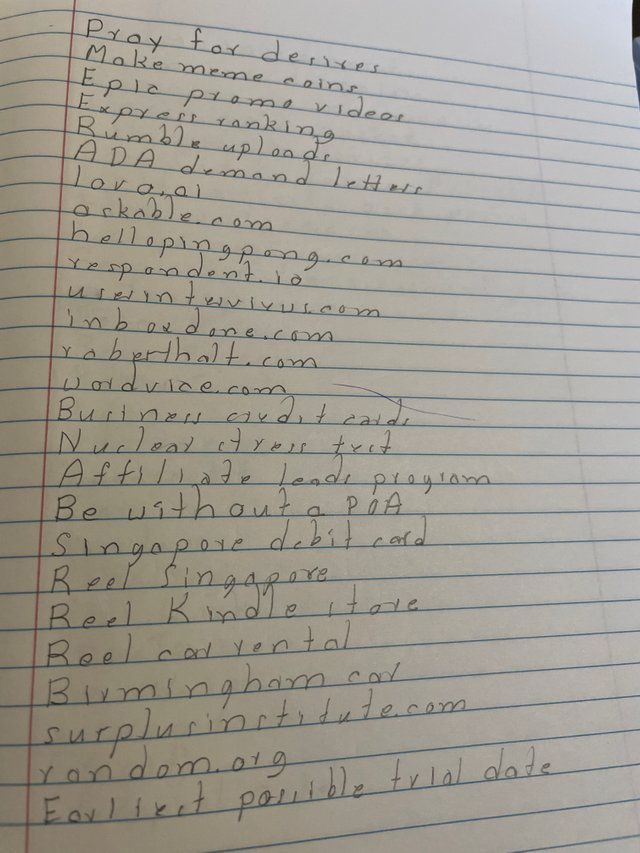 Pray for desires
Make meme coins
Epic promo videos
Express ranking
Rumble uploads
ADA demand letters
lova.ai
askable.com
hellopingpong.com
respondent.io
userinterviews.com
inboxdone.com
roberthalt.com
wordvice.com
Business credit cards
Nuclear stress test
Affiliate leads program
Be without a POA
Singapore debit card
Reel Singapore
Reel Kindle store
Reel car rental
Birmingham car
surplusinstitute.com
random.org
Earliest possible trial date